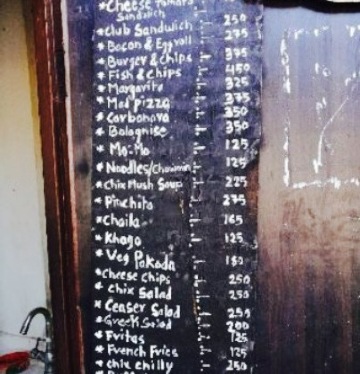 *Cheese Tomato
Sandwich 250
*Club Sandwich 275
*Bacon & Eggroll
*Burger & Chips 375
*Fish & Chips 450
*Margarita 325
*Mad Pizza 375
*Carbonara 350
*Bolognise 350
*Mo:Mo 125
*Noodles/Chowmin 125
*Chix Mush Soup 225
*Pinchito 275
*Chaila 165
*Khago 125
*Veg Pakoda 150
*Cheese Chips 250
*Chix Salad 250
*Ceaser Salad 250
*Greek Salad 200
*Fritas 125
*French Fries 125
*chix chilly 250